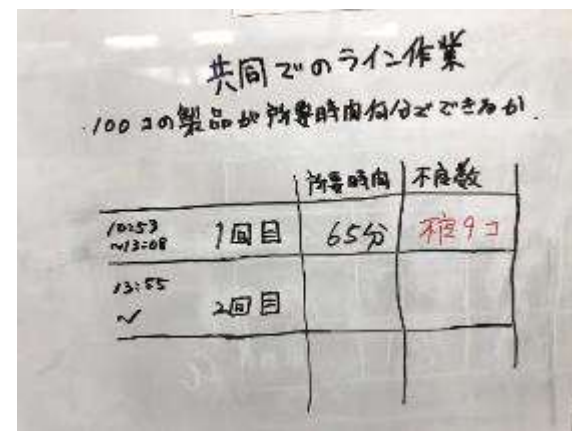 共同でのライン作業
・100コの製品が所要時間何分でできるか.
所要時間 不良数
10:53
~13:08 1回目 65分 不良9コ
13:55
~ 2回目